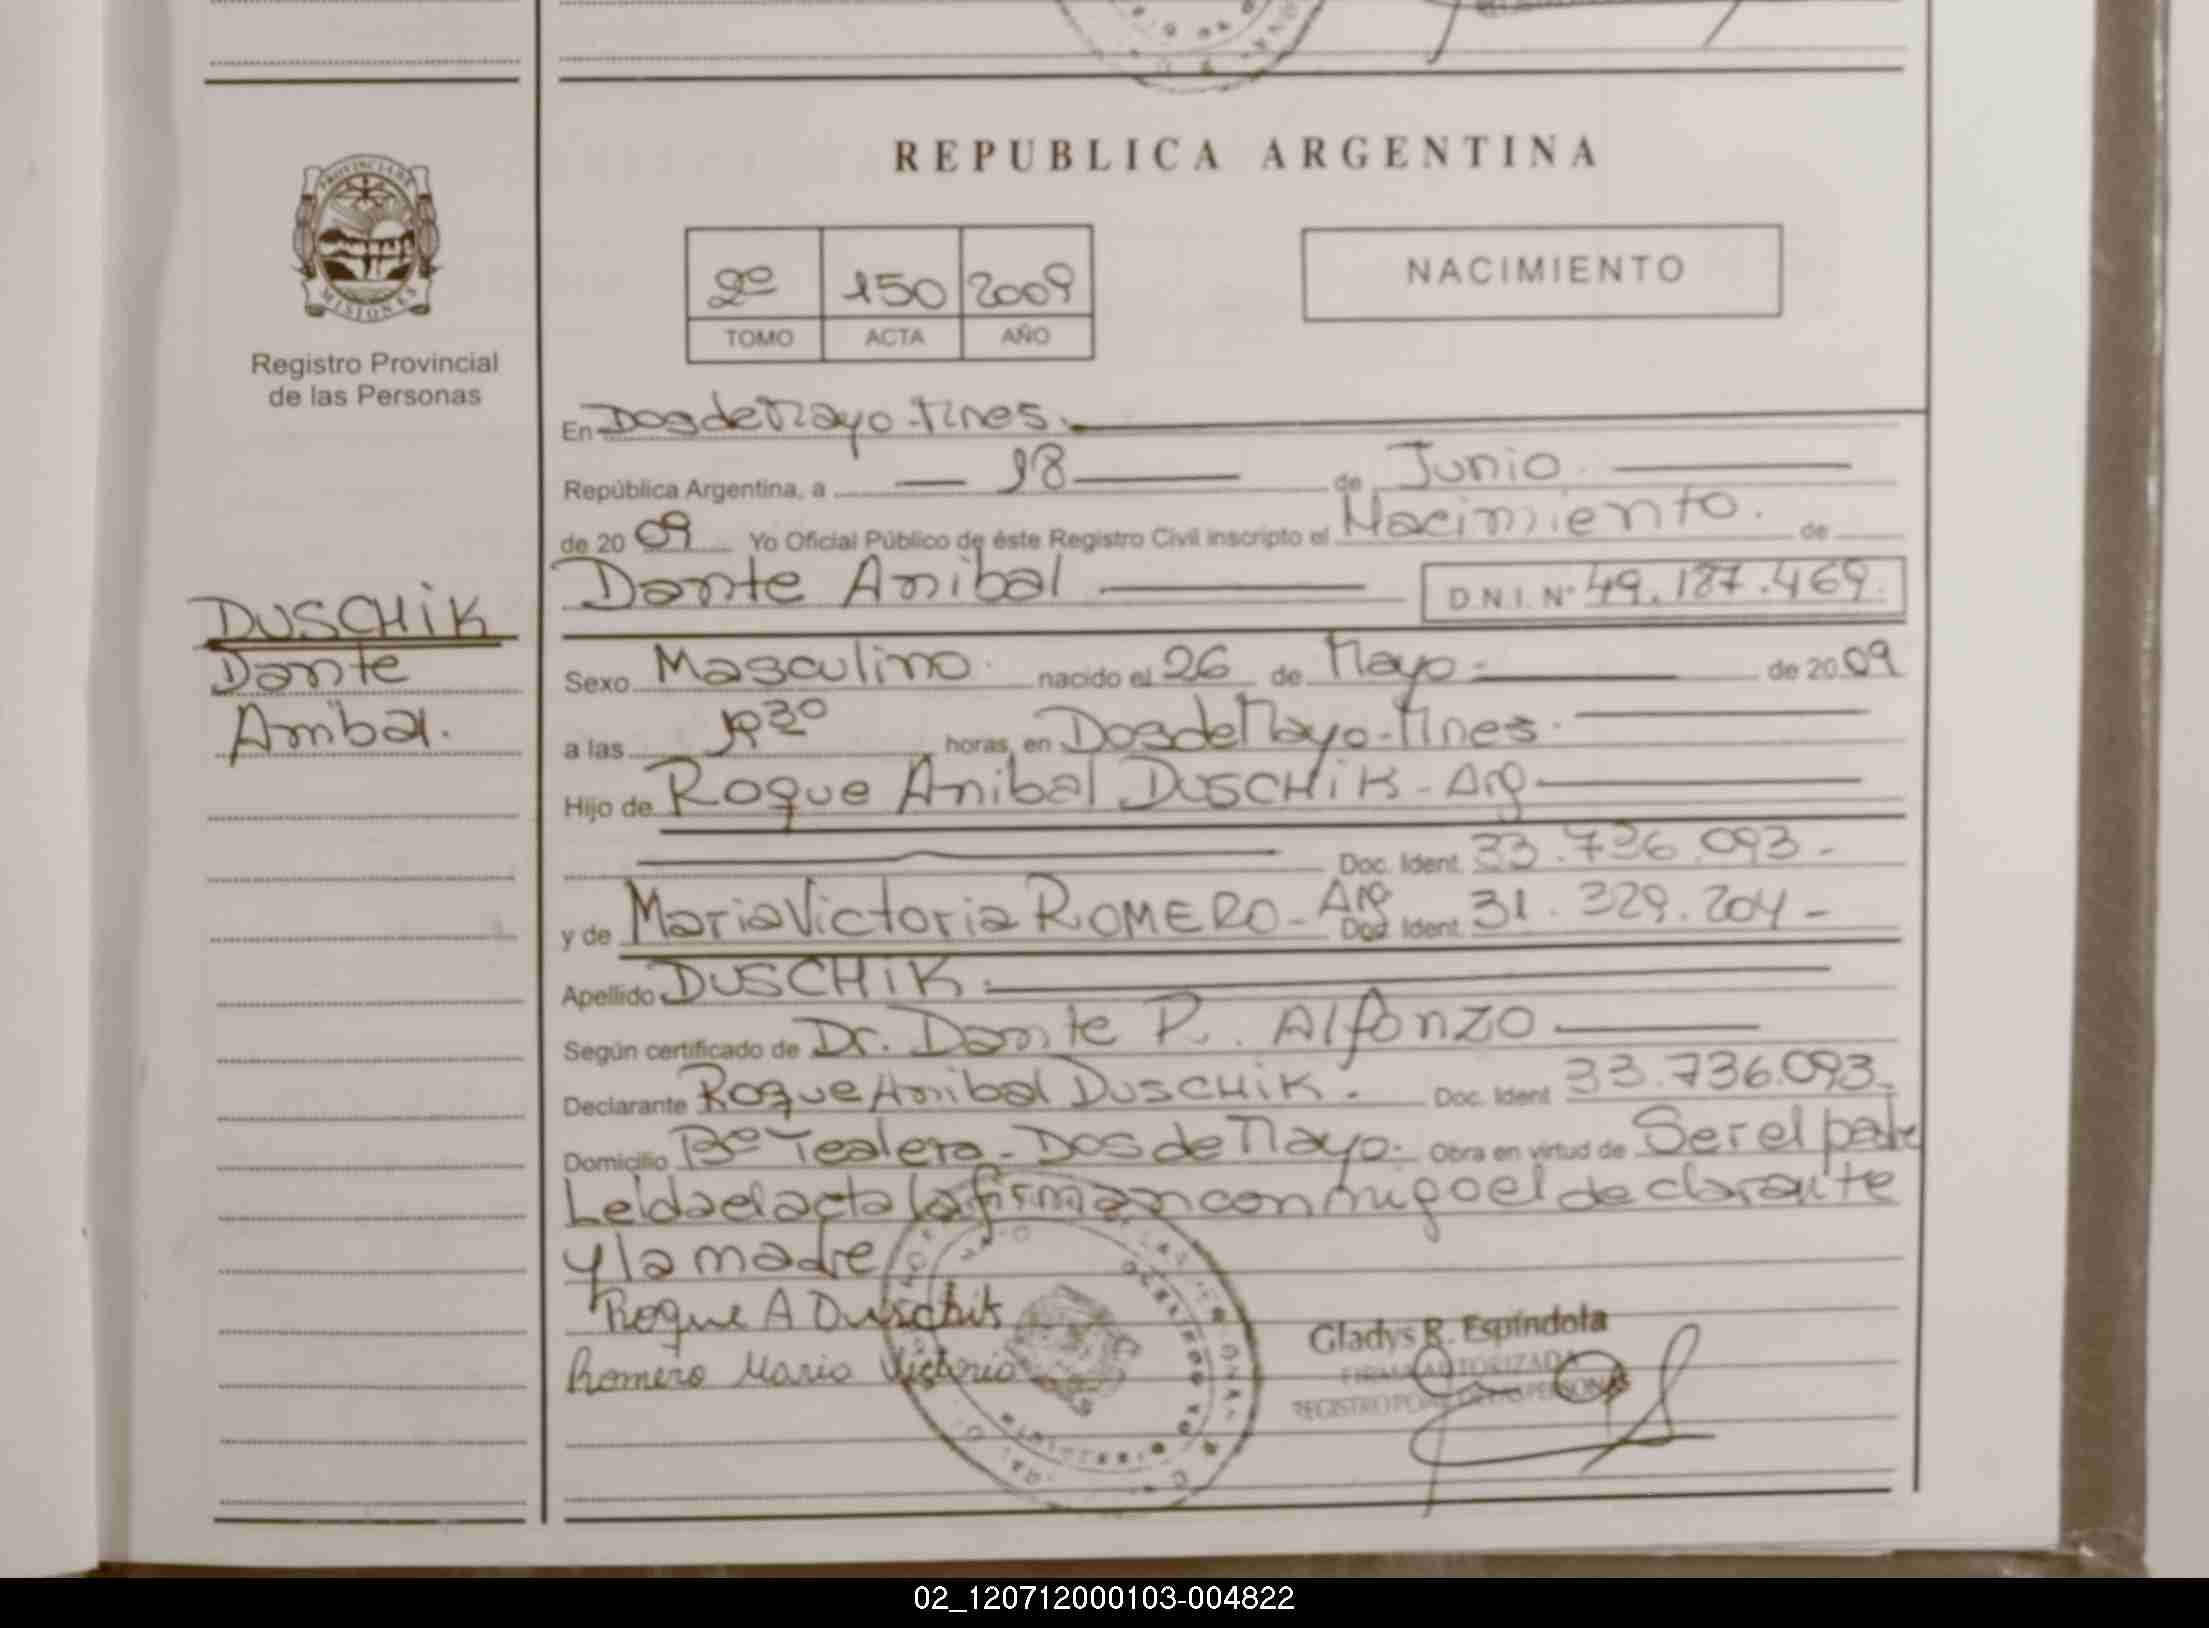 REPUBLICA ARGENTINA
PROVINCIA DE
MISIONES
Registro Provincial
de las Personas
2º 150 2009
TOMO ACTA AÑO
NACIMIENTO
En Dos de Mayo - Mnes.
República Argentina, a 18 de Junio
de 20 09 Yo Oficial Público de éste Registro Civil inscripto el Nacimiento. de
Dante Anibal D.N.I. Nº 49.187.469.
DUSCHiK
Dante
Anibal.
Sexo Masculino nacido el 26 de Mayo de 20 09
a las horas, en Dos de Mayo - Mnes.
Hijo de Roque Anibal DUSCHiK - Arg
Doc. Ident. 33.736.093 -
y de Maria Victoria ROMERO - Arg Doc. Ident. 31.329.204 -
Apellido DUSCHiK
Según certificado de Dr. Dante R. Alfonzo
Declarante Roque Anibal DUSCHiK. Doc. Ident 33.736.093.
Domicilio Bº Tealera - Dos de Mayo. Obra en virtud de Ser el padre
Leida el acta la firman conmigo el declarante
y la madre
Roque A Duschik
Romero Maria Victoria
Gladys R. Espíndola
FIRMA AUTORIZADA
02_120712000103-004822